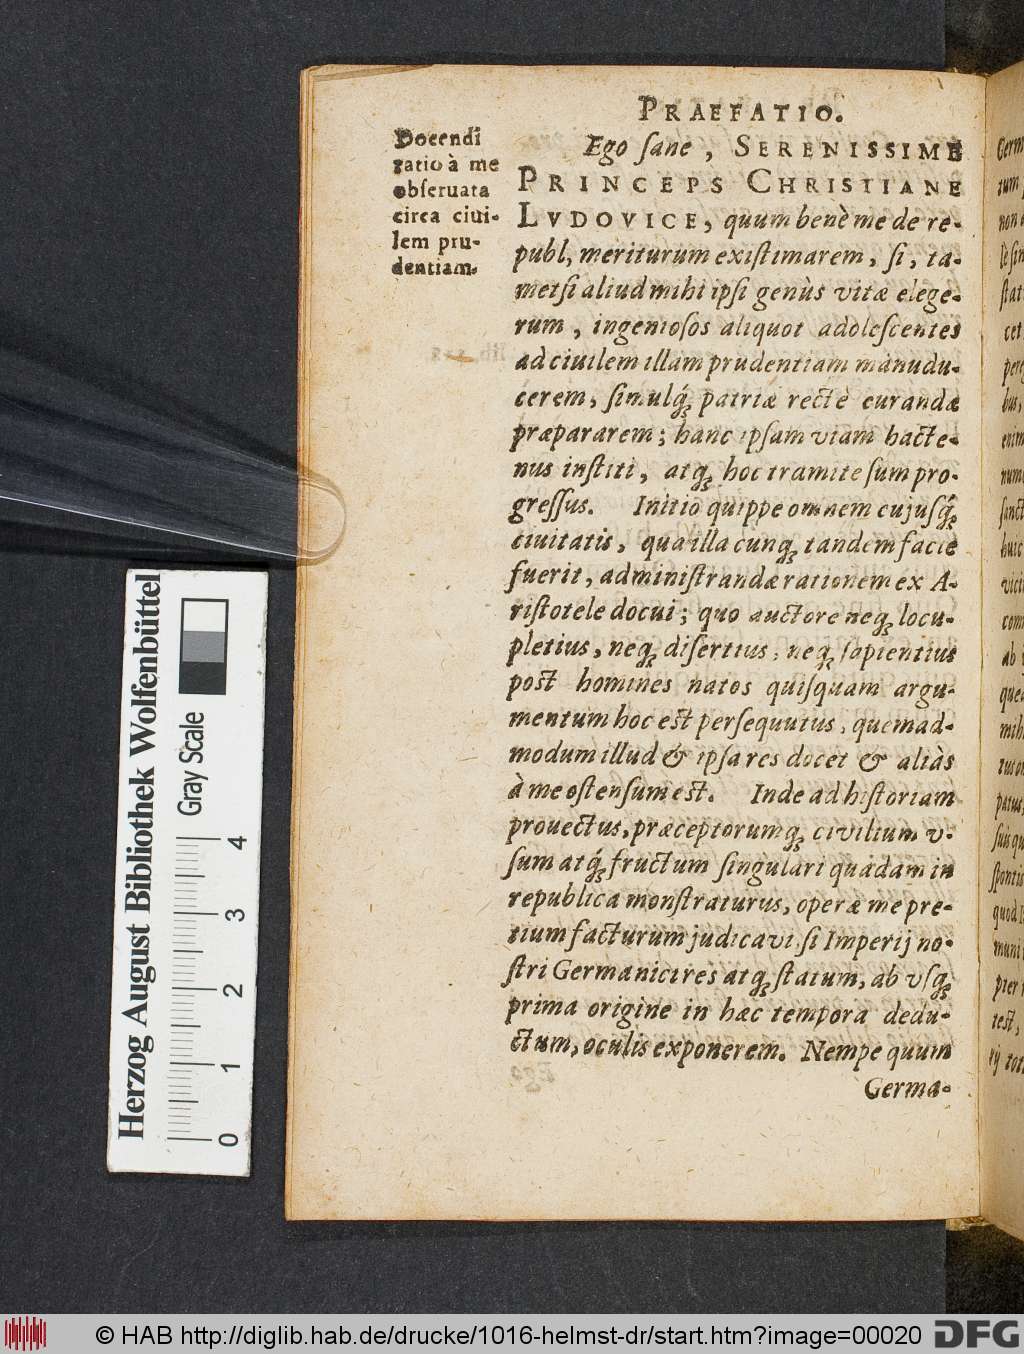 PRAEFATIO.
Docendi
ratio à me
obseruata
circa ciui-
lem pru-
dentiam.
Ego ſane, SERENISSIME
PRINCEPS CHRISTIANE
LVDOVICE, quum benè me de re-
publ, meriturum exiſtimarem, ſi, ta-
metſi aliud mihi ipſi genùs vitæ elege-
rum, ingenioſos aliquot adoleſcentes
ad ciuilem illam prudentiam manudu-
cerem, ſimulq́ꝫ patriæ rectè curandæ
præpararem; hanc ipſam viam hacte-
nus inſtiti, atqꝫ hoc tramite ſum pro-
greſſus. Initio quippe omnem cujuſq́ꝫ
ciuitatis, qua illa cunqꝫ tandem facie
fuerit, adminiſtrandæ rationem ex A-
riſtotele docui; quo auctore neqꝫ locu-
pletius, neqꝫ diſertius, neqꝫ ſapientius
poſt homines natos quiſquam argu-
mentum hoc eſt perſequutus, quemad-
modum illud & ipſa res docet & aliàs
à me oſtenſum eſt. Inde ad hiſtoriam
prouectus, præceptorumqꝫ civilium v-
ſum atq́ꝫ fructum ſingulari quadam in
republica monſtraturus, operæ me pre-
tium facturum judicavi ſi Imperij no-
ſtri Germanici res atqꝫ ſtatum, ab vſqꝫ
prima origine in hæc tempora dedu-
ctum, oculis exponerem. Nempe quum
Germa-
Herzog August Bibliothek Wolfenbüttel
Gray Scale
0 1 2 3 4
© HAB http://diglib.hab.de/drucke/1016-helmst-dr/start.htm?image=00020
DFG